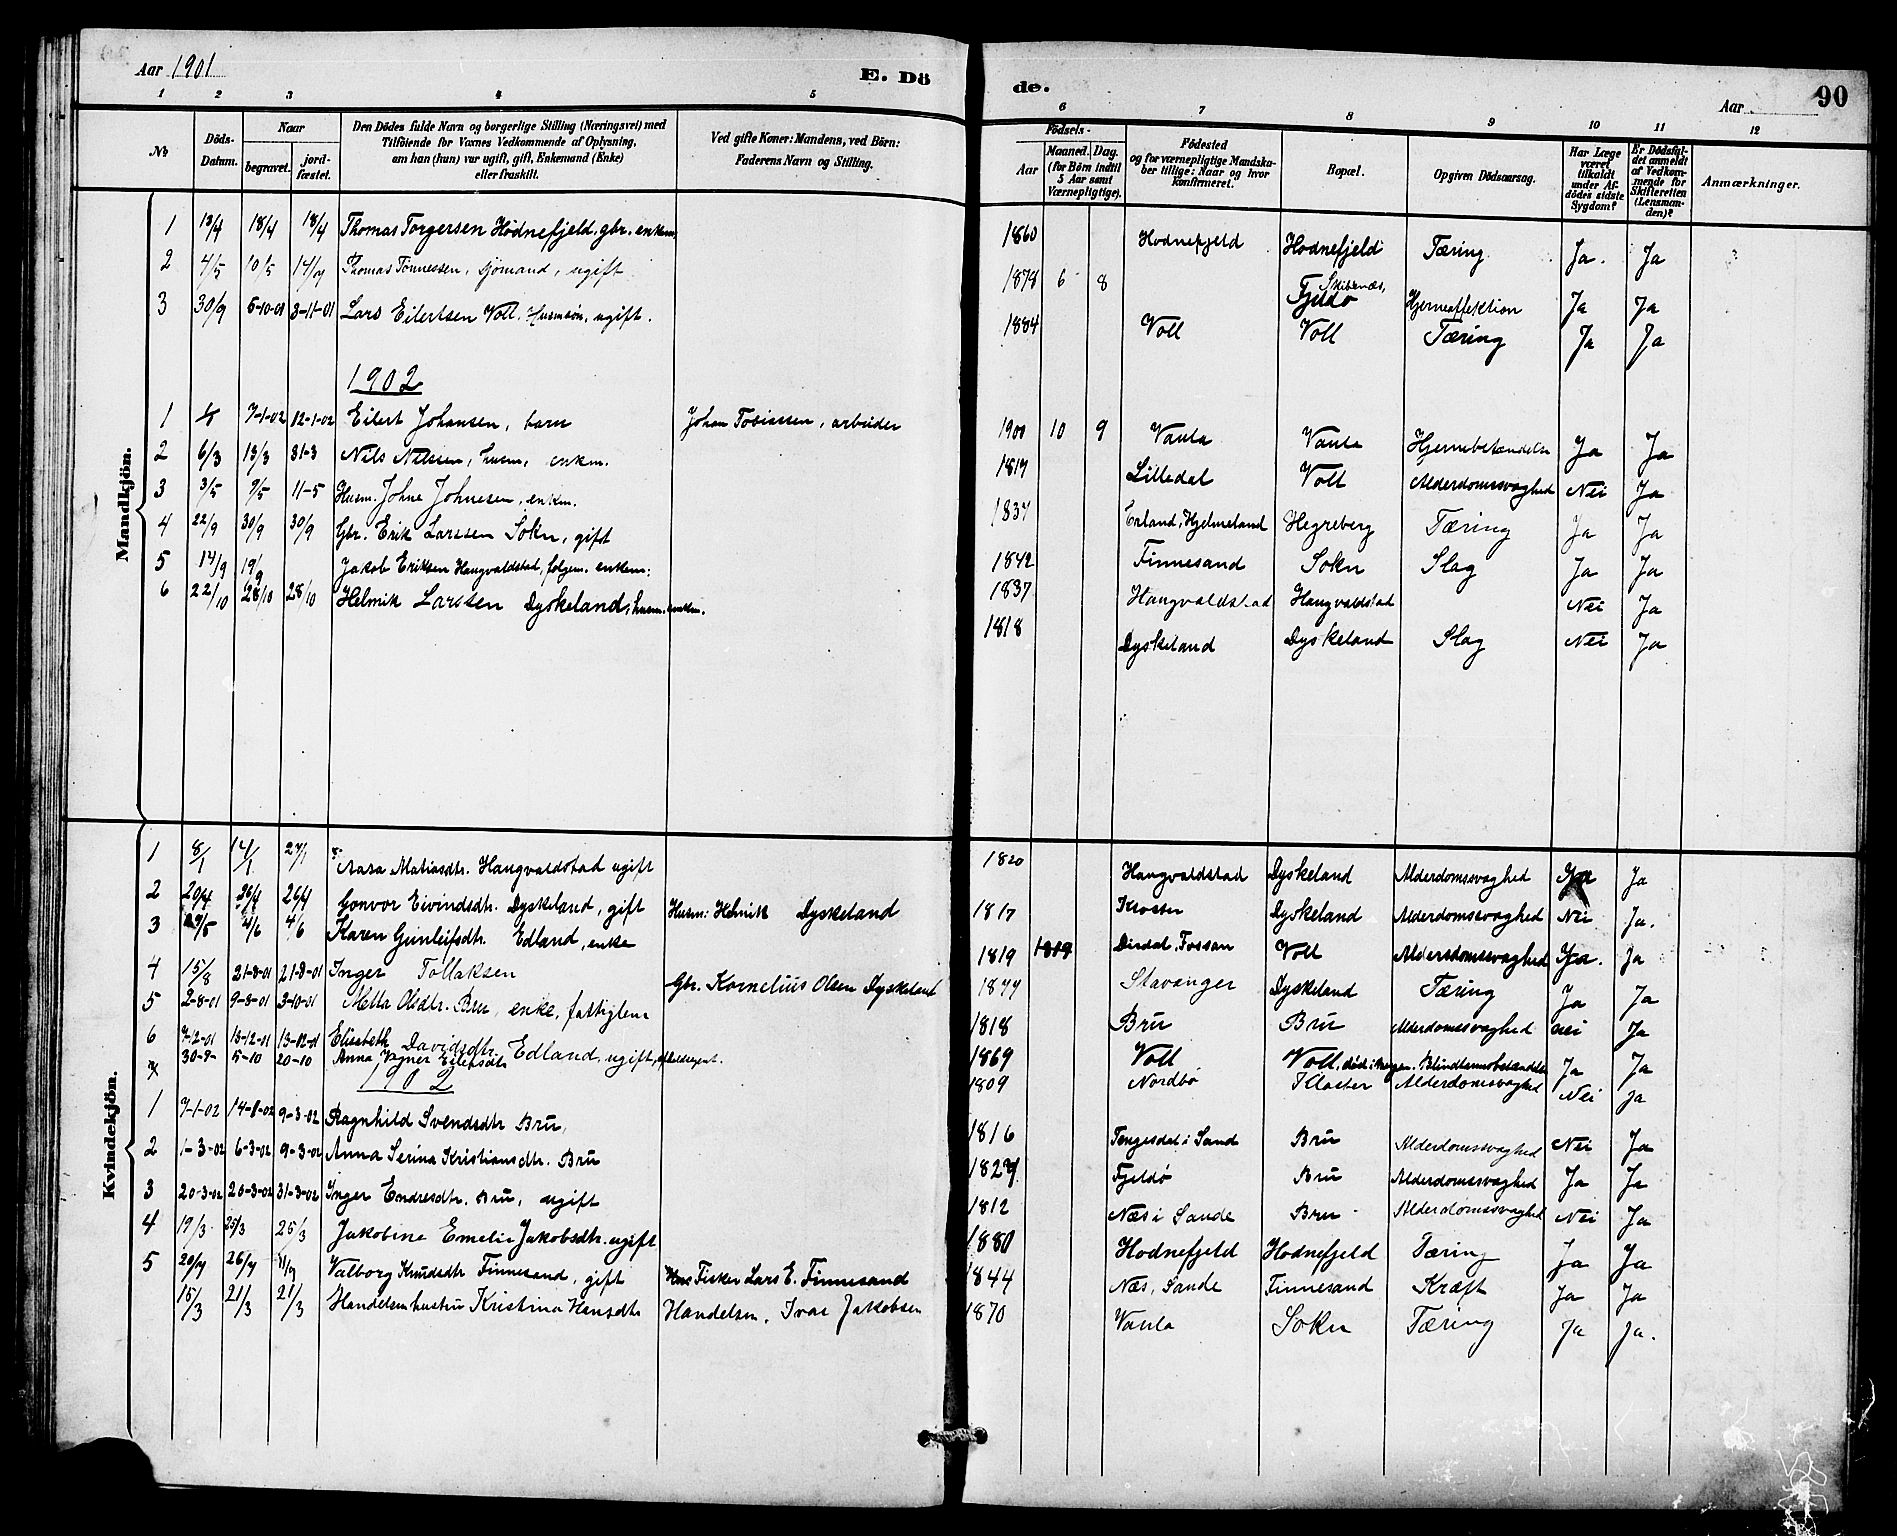 Aar 1901 E. Döde. Aar 90
1 2 3 4 5 6 7 8 9 10 11 12
No
Döds-Datum.
Naar
begravet.
jord-fæstet.
Den Dödes fulde Navn og borgerlige Stilling (Næringsvei) med
Tilföiende for Voxnes Vedkommende af Oplysning,
om han (hun) var ugift, gift, Enkemand (Enke)
eller fraskilt.
Ved gifte Koner: Mandens, ved Börn:
Faderens Navn og Stilling.
Födsels-
Aar
Maaned. Dag.
(for Börn indtil
5 Aar samt
Værnepligtige).
Födested
og for værnepligtige Mandska-
ber tillige: Naar og hvor
Konfirmeret.
Bopæl.
Opgiven Dödsaarsag.
Har Læge
været
tilkaldt
under Af-
dödes sidste
Sygdom?
Er Dödsfal-
det anmeldt
af Vedkom-
mende for
Skifteretten
(Lensman-
den)?
Anmærkninger.
Mandkjön.
1 13/4 18/4 18/4 Thomas Torgersen Hodnefjeld. gbr. enkem. 1860 Hodnefjeld Hodnefjeld Tæring Ja. Ja
2 4/5 10/5 14/7 Thomas Tönnessen, sjömand, ugift 1878 6 8 Fjeldö Hjerneaffektion Ja Ja
3 30/9 5-10-01 3-11-01 Lars Eilertsen Voll. Husmsön, ugift. 1884 Voll Voll Tæring Ja Ja
1902
1 7-1-02 12-1-02 Eilert Johansen, barn Johan Tobiassen, arbeider 1900 10 9 Vaula Vaula Hjernebetændelse Ja Ja
2 6/3 13/3 31-3 Nils Nilssen, husm, enkm. 1817 Lilledal Voll Alderdomssvaghed Nei Ja
3 3/5 9/5 11-5 Husm. Johne Johnesen, enkm. 1837 Erland, Hjelmeland Hegreberg Tæring Ja Ja
4 22/9 30/9 30/9 Gbr. Erik Larssen Sokn, gift 1842 Finnesand Sokn Slag Ja Ja
5 14/9 19/9 Jakob Eriksen Haugvaldstad, folgem. enkem: 1837 Haugvaldstad Haugvaldstad Nei Ja
6 22/10 28/10 28/10 Helmik Larssen Dyskeland, husm. enkm. 1818 Dyskeland Dyskeland Slag Nei Ja
Kvindekjön.
1 8/1 14/1 27/1 Aasa Matiasdtr. Haugvaldstad ugift 1820 Haugvaldstad Dyskeland Alderdomssvaghed Ja Ja
2 20/4 26/4 26/4 Gonvor Eivindsdtr. Dyskeland, gift Husm: Helmik Dyskeland 1817 Kloster Dyskeland Alderdomssvaghed Nei Ja.
3 29/5 4/6 4/6 Karen Gunleifsdtr. Edland, enke 1819 1819 Dirdal, Fossan Voll Alderdomssvaghed Ja. Ja
4 15/8 21-8-01 21-8-01 Inger Tollaksen Gbr. Kornelius Olsen Dyskeland 1877 Stavanger Dyskeland Tæring Ja Ja
5 2-8-01 9-8-01 3-10-01 Metta Olsdtr. Bru, enke, fattiglem 1818 Bru Bru Alderdomssvaghed Nei Ja
6 7-12-01 13-12-01 13-12-01 Elisabeth Davidsdtr. Edland, ugift, 1869 Voll Voll, död i Bergen. Blindtarmsbetændelse Ja Ja
7 30-9- 5-10 20-10 Anna Eilefsdtr 1809 Nordbö Kloster Alderdomssvaghed Nei Ja
1902
1 7-1-02 14-1-02 9-3-02 Ragnhild Svendsdtr Bru, 1816 Tengesdal i Sand Bru Alderdomssvaghed Nei Ja
2 1-3-02 6-3-02 9-3-02 Anna Serina Kristiansdtr. Bru 1827 Fjeldö Bru Alderdomssvaghed Ja Ja
3 20-3-02 20-3-02 31-3-02 Inger Endresdtr. Bru, ugift 1812 Næs i Sande Bru Alderdomssvaghed Nei Ja
4 19/3 25/3 25/3 Jakobine Emelie Jakobsdtr. ugift 1880 Hodnefjeld Hodnefjeld Tæring Ja Ja
5 20/7 26/7 Valborg Knudsdtr Finnesand, gift Fisker Lars E. Finnesand 1844 Næs, Sande Finnesand Kræft Ja Ja
15/3 21/3 21/3 Handelsm hustru Kristina Hansdtr Handelsm. Ivar Jakobsen 1870 Vaula Sokn Tæring Ja Ja.